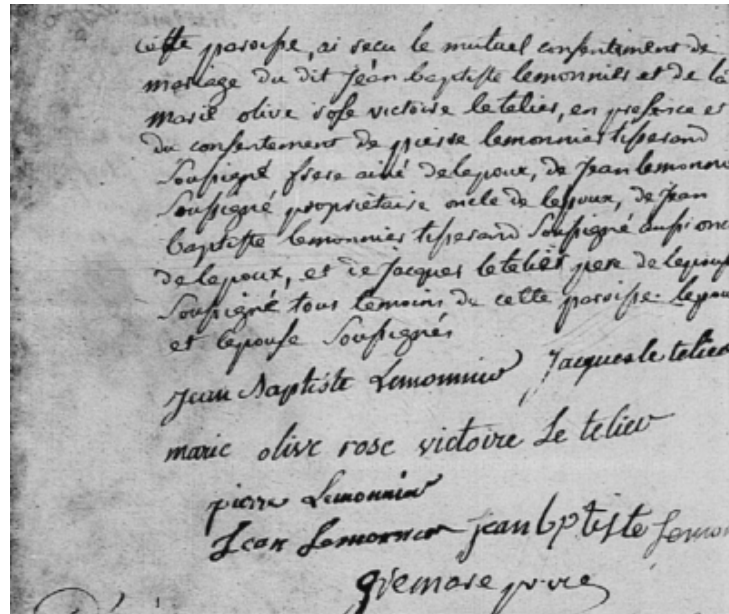 cette paroisse, ai recu le mutuel consentement de
mariage du dit jéan baptiste lemonnier et de la
marie olive rose victoire letelier, en presence et
du consentement de pierre lemonnier tisserand
soussigné frere ainé delepoux, de jean lemonn
soussigné propriétaire oncle de lepoux, de jean
baptiste lemonnier tisserand soussigné aussi onc
delepoux, et de jacques letelier pere de lepous
soussigné tous temoins de cette paroisse. lepou
et lepouse soussignés
jean Baptiste Lemonnier jacques le telier
marie olive rose victoire Le telier
pierre Lemonnier
Jean Lemonnier jean bptiste Lemon